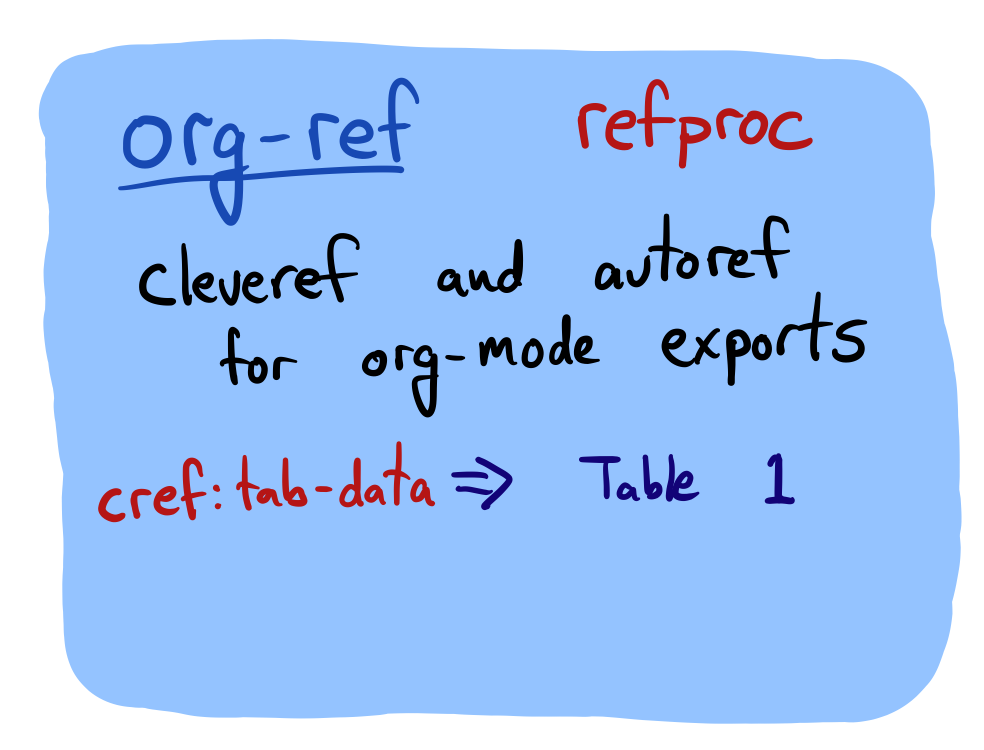 org-ref refproc
cleveref and autoref
for org-mode exports
cref:tab-data ⇒ Table 1